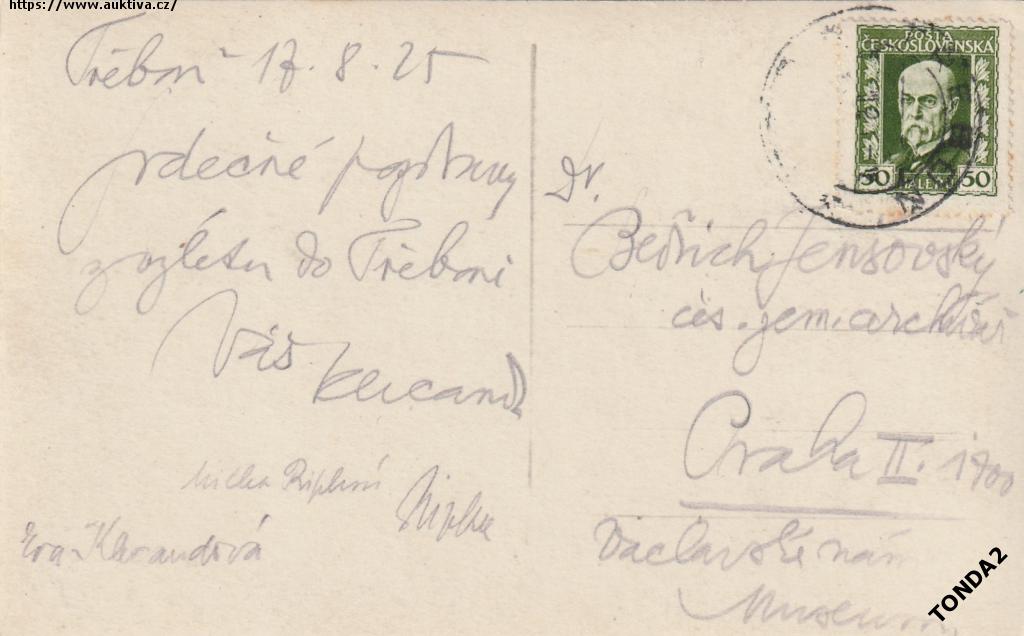 https://www.auktiva.cz/
Třeboň 17.8.25
srdečné pozdravy
z výletu do Třeboni
Váš
Eva Klicandová
POŠTA
ČESKOSLOVENSKÁ
50 50
Dr.
Bedřich Jensovský
zem. archivář
Praha II. 1700
Václavské nám
Museum
TONDA2